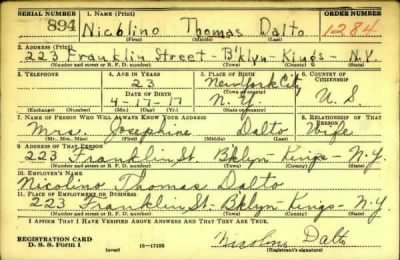 SERIAL NUMBER 1. NAME (Print) ORDER NUMBER
894 Nicolino Thomas Dalto 1284
(First) (Middle) (Last)
2. ADDRESS (Print)
223 Franklin Street - B'klyn - Kings - N.Y.
(Number and street or R. F. D. number) (Town) (County) (State)
3. TELEPHONE 4. AGE IN YEARS 5. PLACE OF BIRTH 6. COUNTRY OF CITIZENSHIP
23 New York City
DATE OF BIRTH (Town or county)
4-17-17 N.Y. U.S.
(Exchange) (Number) (Mo.) (Day) (Yr.) (State or country)
7. NAME OF PERSON WHO WILL ALWAYS KNOW YOUR ADDRESS 8. RELATIONSHIP OF THAT PERSON
Mrs. Josephine Dalto Wife
(Mr., Mrs., Miss) (First) (Middle) (Last)
9. ADDRESS OF THAT PERSON
223 Franklin St. Bklyn - Kings - N.Y.
(Number and street or R. F. D. number) (Town) (County) (State)
10. EMPLOYER'S NAME
Nicolino Thomas Dalto
11. PLACE OF EMPLOYMENT OR BUSINESS
223 Franklin St. Bklyn - Kings - N.Y.
(Number and street or R. F. D. number) (Town) (County) (State)
I AFFIRM THAT I HAVE VERIFIED ABOVE ANSWERS AND THAT THEY ARE TRUE.
REGISTRATION CARD
D. S. S. Form 1 (over) 16-17105 Nicolino Dalto
(Registrant's signature)